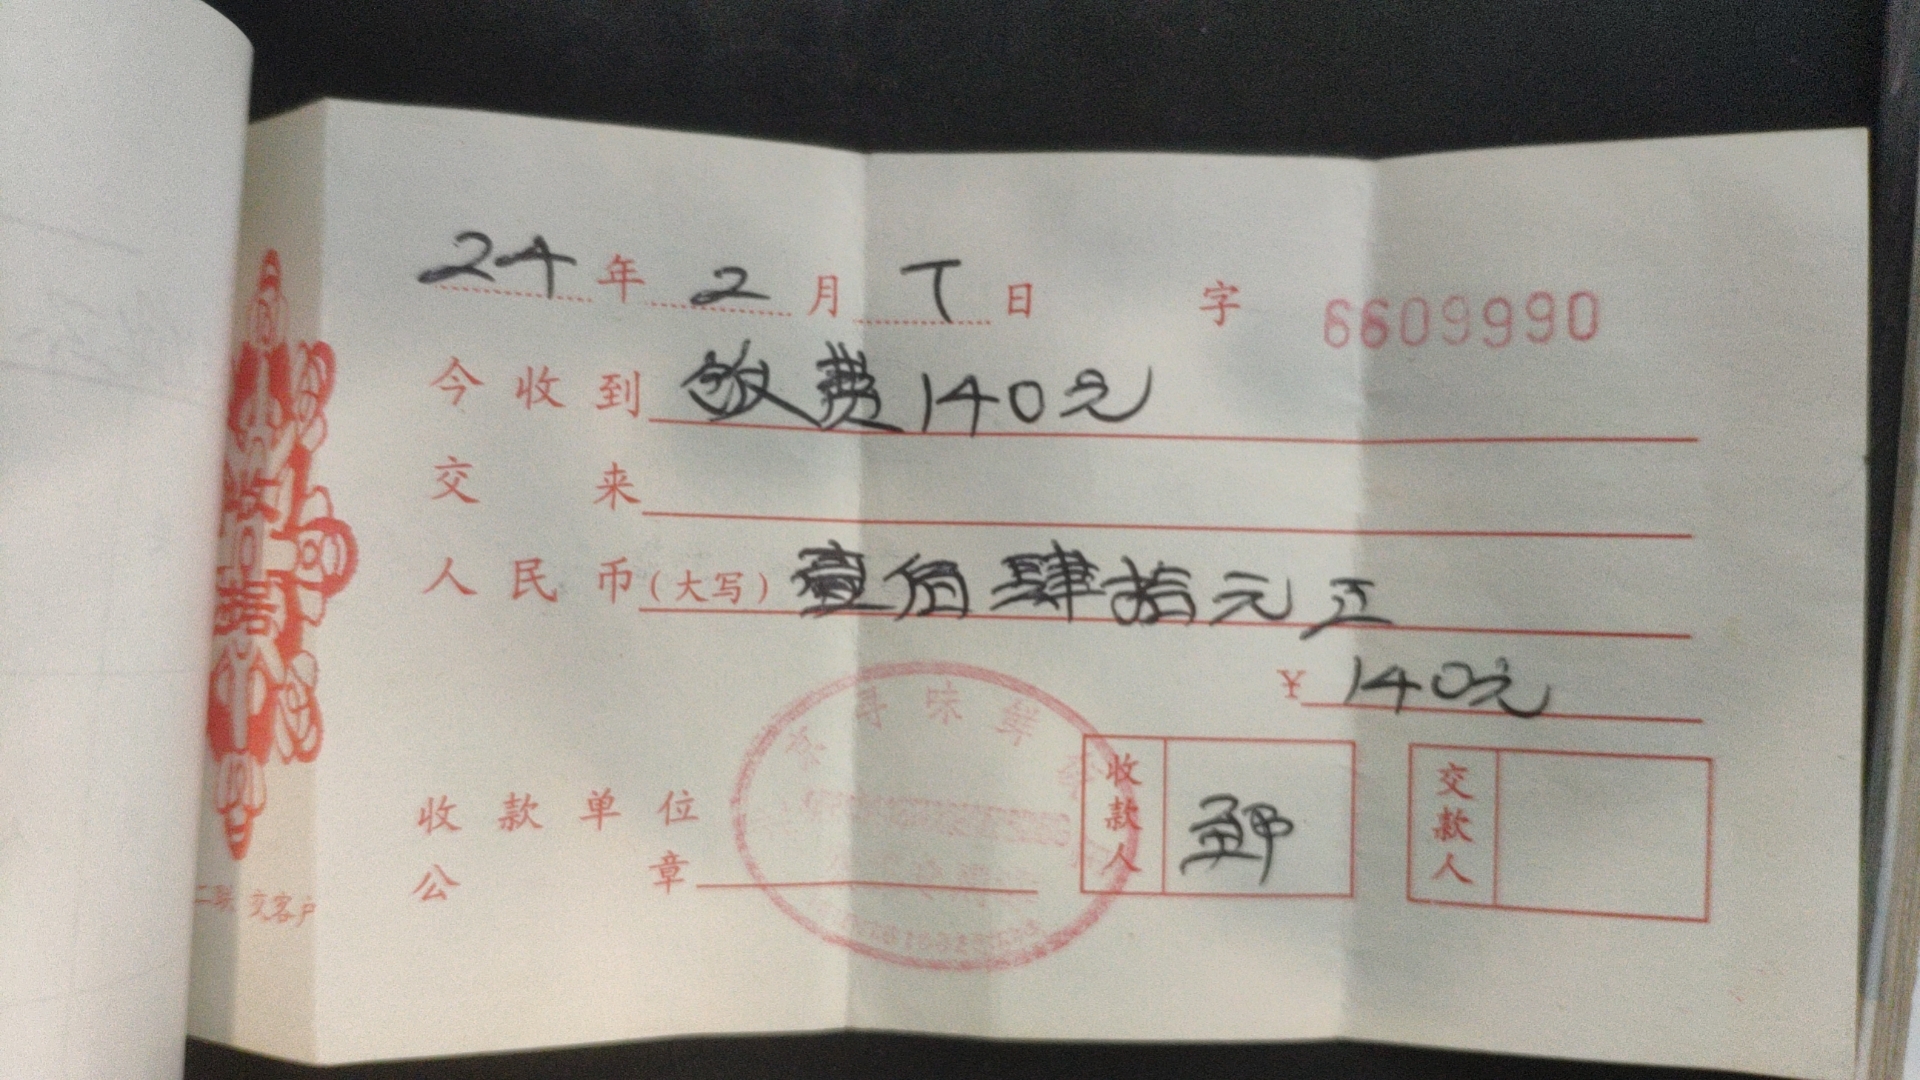 24年2月7日 字 6609990
今收到 缴费140元
交来
人民币(大写) 壹佰肆拾元正
¥ 140元
寻味鲜
收款单位
公章
收款人 邹
交款人
收据
二联 交客户